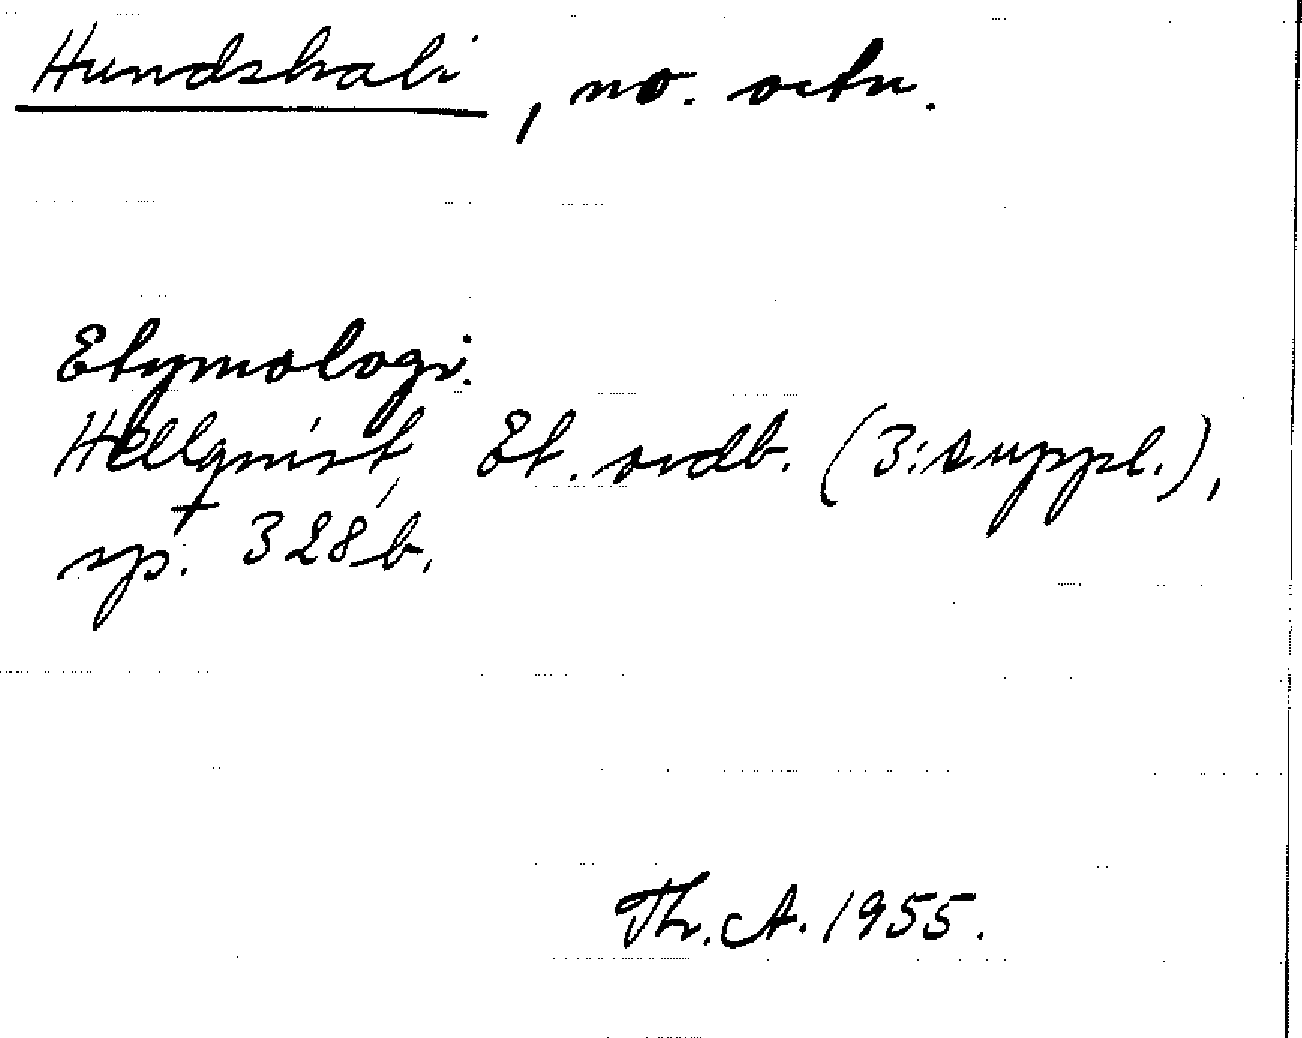 Hundshali, no. octn.
Etymologi.
Hellqvist, Et. ordb. (3: suppl.),
sp. 328 b.
Th. A. 1955.